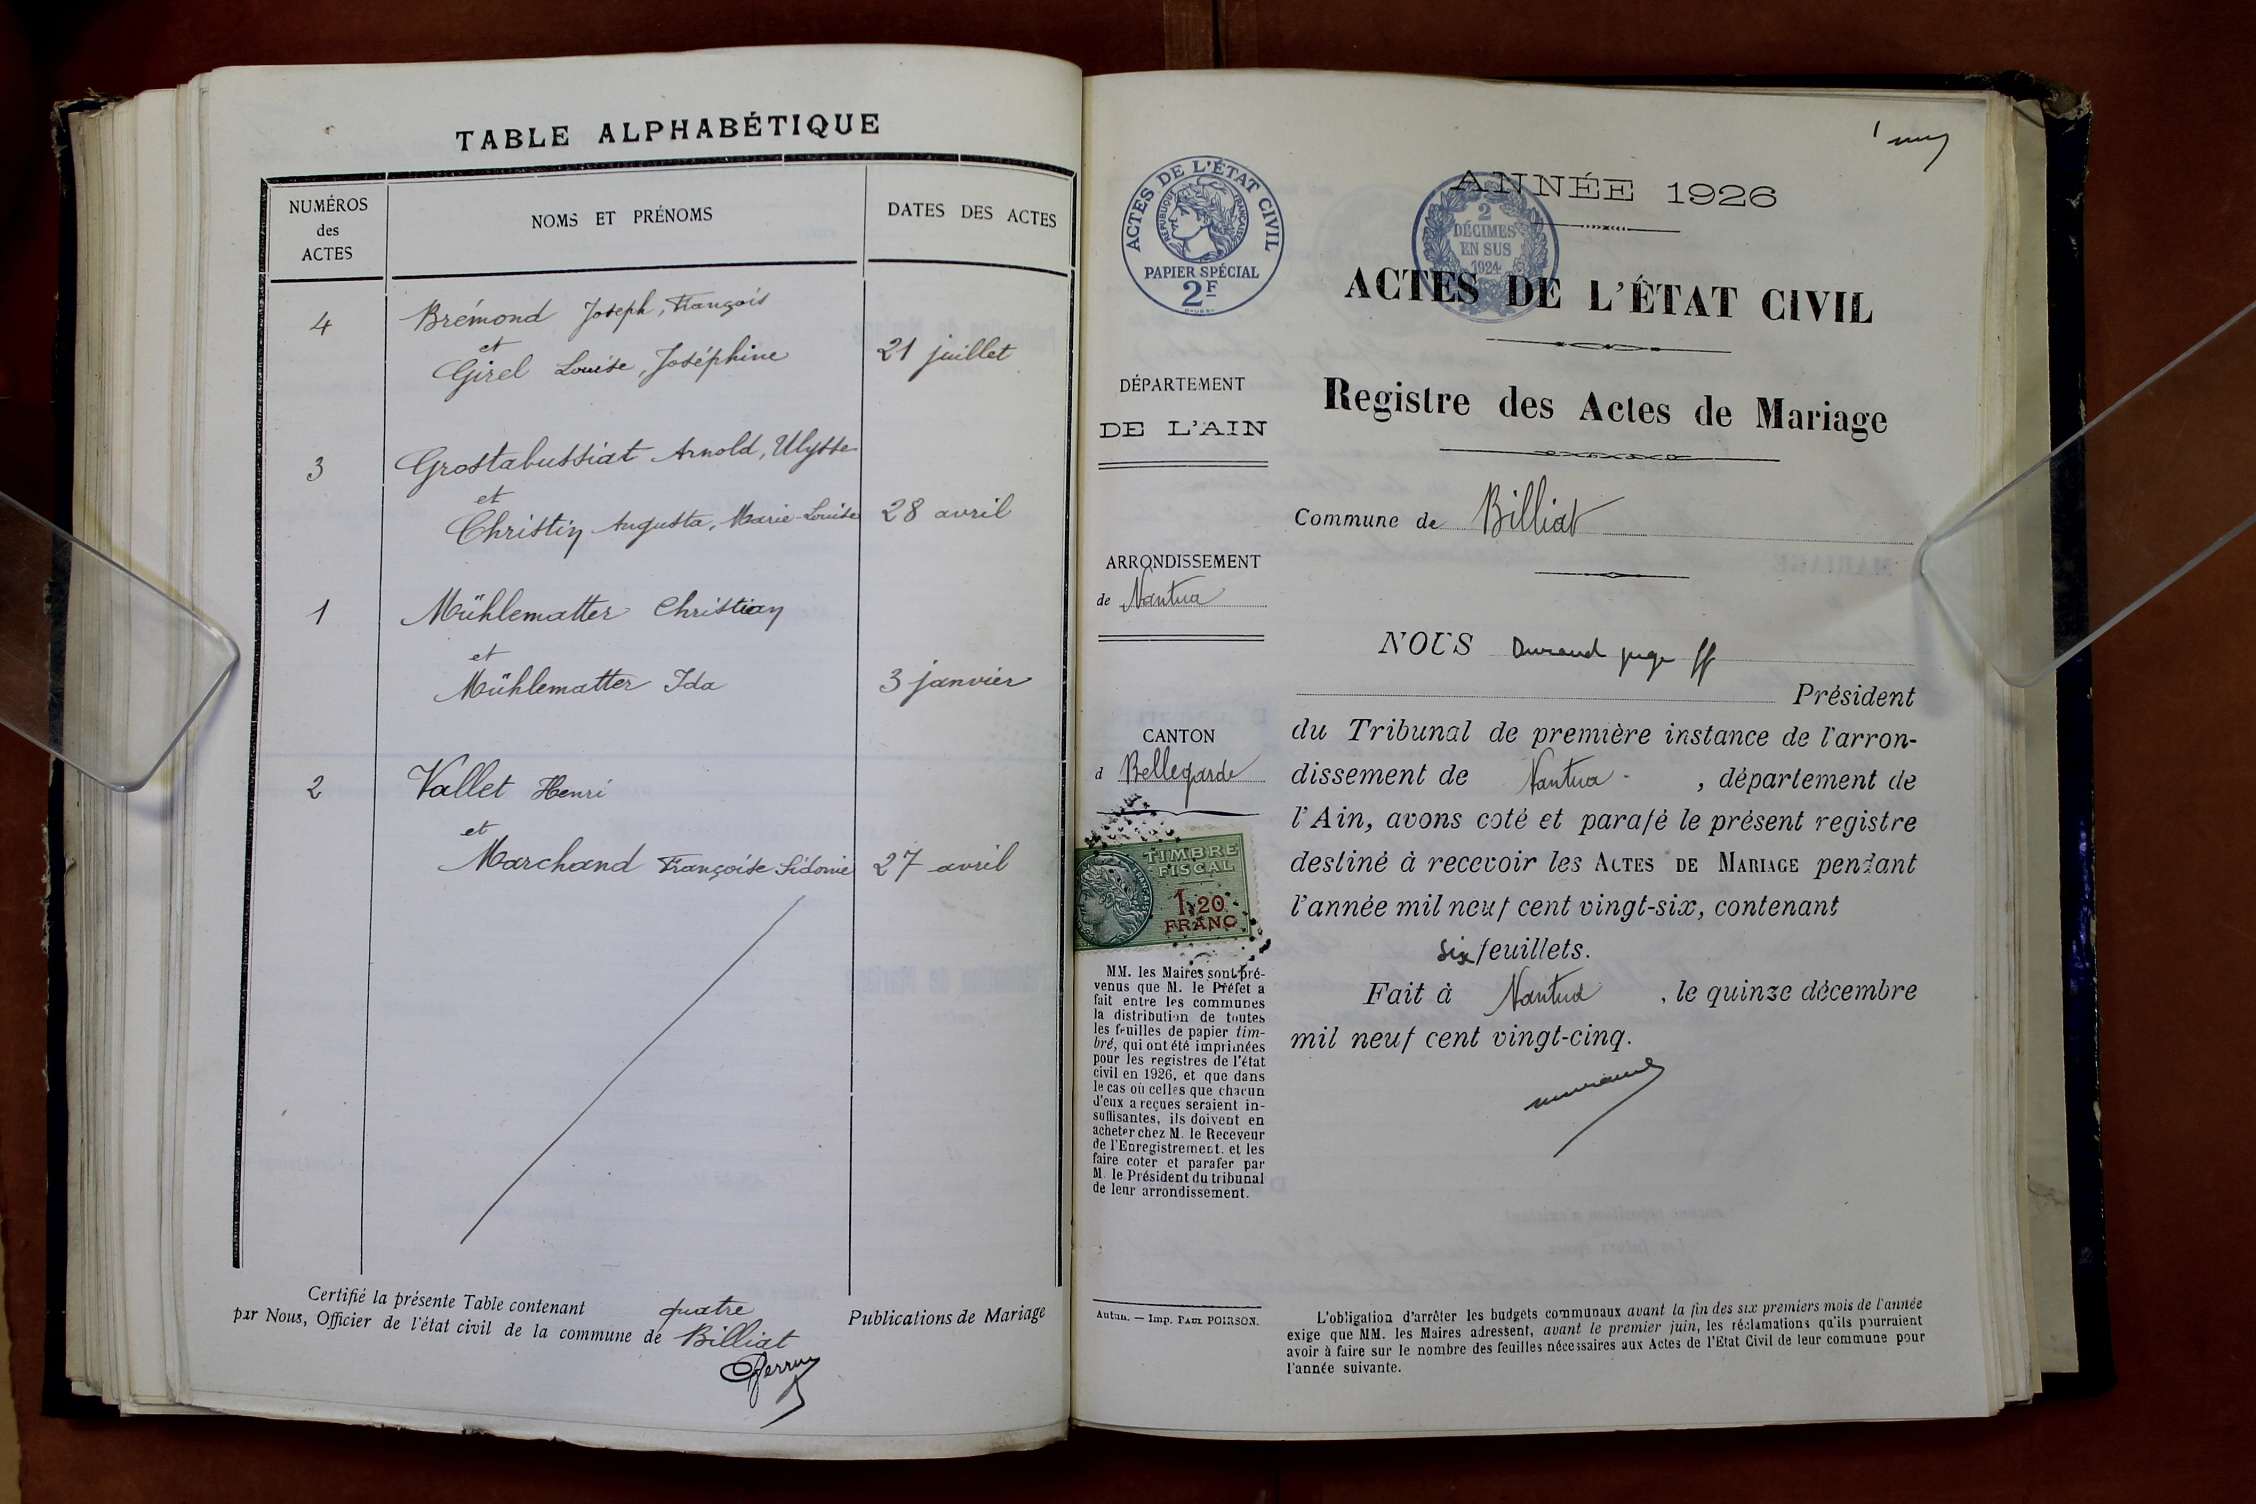 TABLE ALPHABÉTIQUE
NUMÉROS
des
ACTES
NOMS ET PRÉNOMS
DATES DES ACTES
4
Brémond Joseph, François
et
Girel Louise, Joséphine
21 juillet
3
Grostabussiat Arnold, Ulysse
et
Christin Augusta, Marie-Louise
28 avril
1
Mühlematter Christian
et
Mühlematter Ida
3 janvier
2
Vallet Henri
et
Marchand Françoise Sidonie
27 avril
Certifié la présente Table contenant quatre Publications de Mariage
par Nous, Officier de l'état civil de la commune de Billiat
1
ACTES DE L'ÉTAT CIVIL
RÉPUBLIQUE FRANÇAISE
PAPIER SPÉCIAL
2F
2
DÉCIMES
EN SUS
1924
ANNÉE 1926
ACTES DE L'ÉTAT CIVIL
Registre des Actes de Mariage
Commune de Billiat
DÉPARTEMENT
DE L'AIN
ARRONDISSEMENT
de Nantua
CANTON
d Bellegarde
TIMBRE
FISCAL
1,20
FRANC
MM. les Maires sont pré-
venus que M. le Préfet a
fait entre les communes
la distribution de toutes
les feuilles de papier tim-
bré, qui ont été imprimées
pour les registres de l'état
civil en 1926, et que dans
le cas où celles que chacun
d'eux a reçues seraient in-
suffisantes, ils doivent en
acheter chez M. le Receveur
de l'Enregistrement. et les
faire coter et parafer par
M. le Président du tribunal
de leur arrondissement.
Autun. — Imp. PAUL POIRSON.
NOUS Durand juge ff
Président
du Tribunal de première instance de l'arron-
dissement de Nantua , département de
l'Ain, avons coté et parafé le présent registre
destiné à recevoir les ACTES DE MARIAGE pendant
l'année mil neuf cent vingt-six, contenant
six feuillets.
Fait à Nantua , le quinze décembre
mil neuf cent vingt-cinq.
L'obligation d'arrêter les budgets communaux avant la fin des six premiers mois de l'année
exige que MM. les Maires adressent, avant le premier juin, les réclamations qu'ils pourraient
avoir à faire sur le nombre des feuilles nécessaires aux Actes de l'Etat Civil de leur commune pour
l'année suivante.